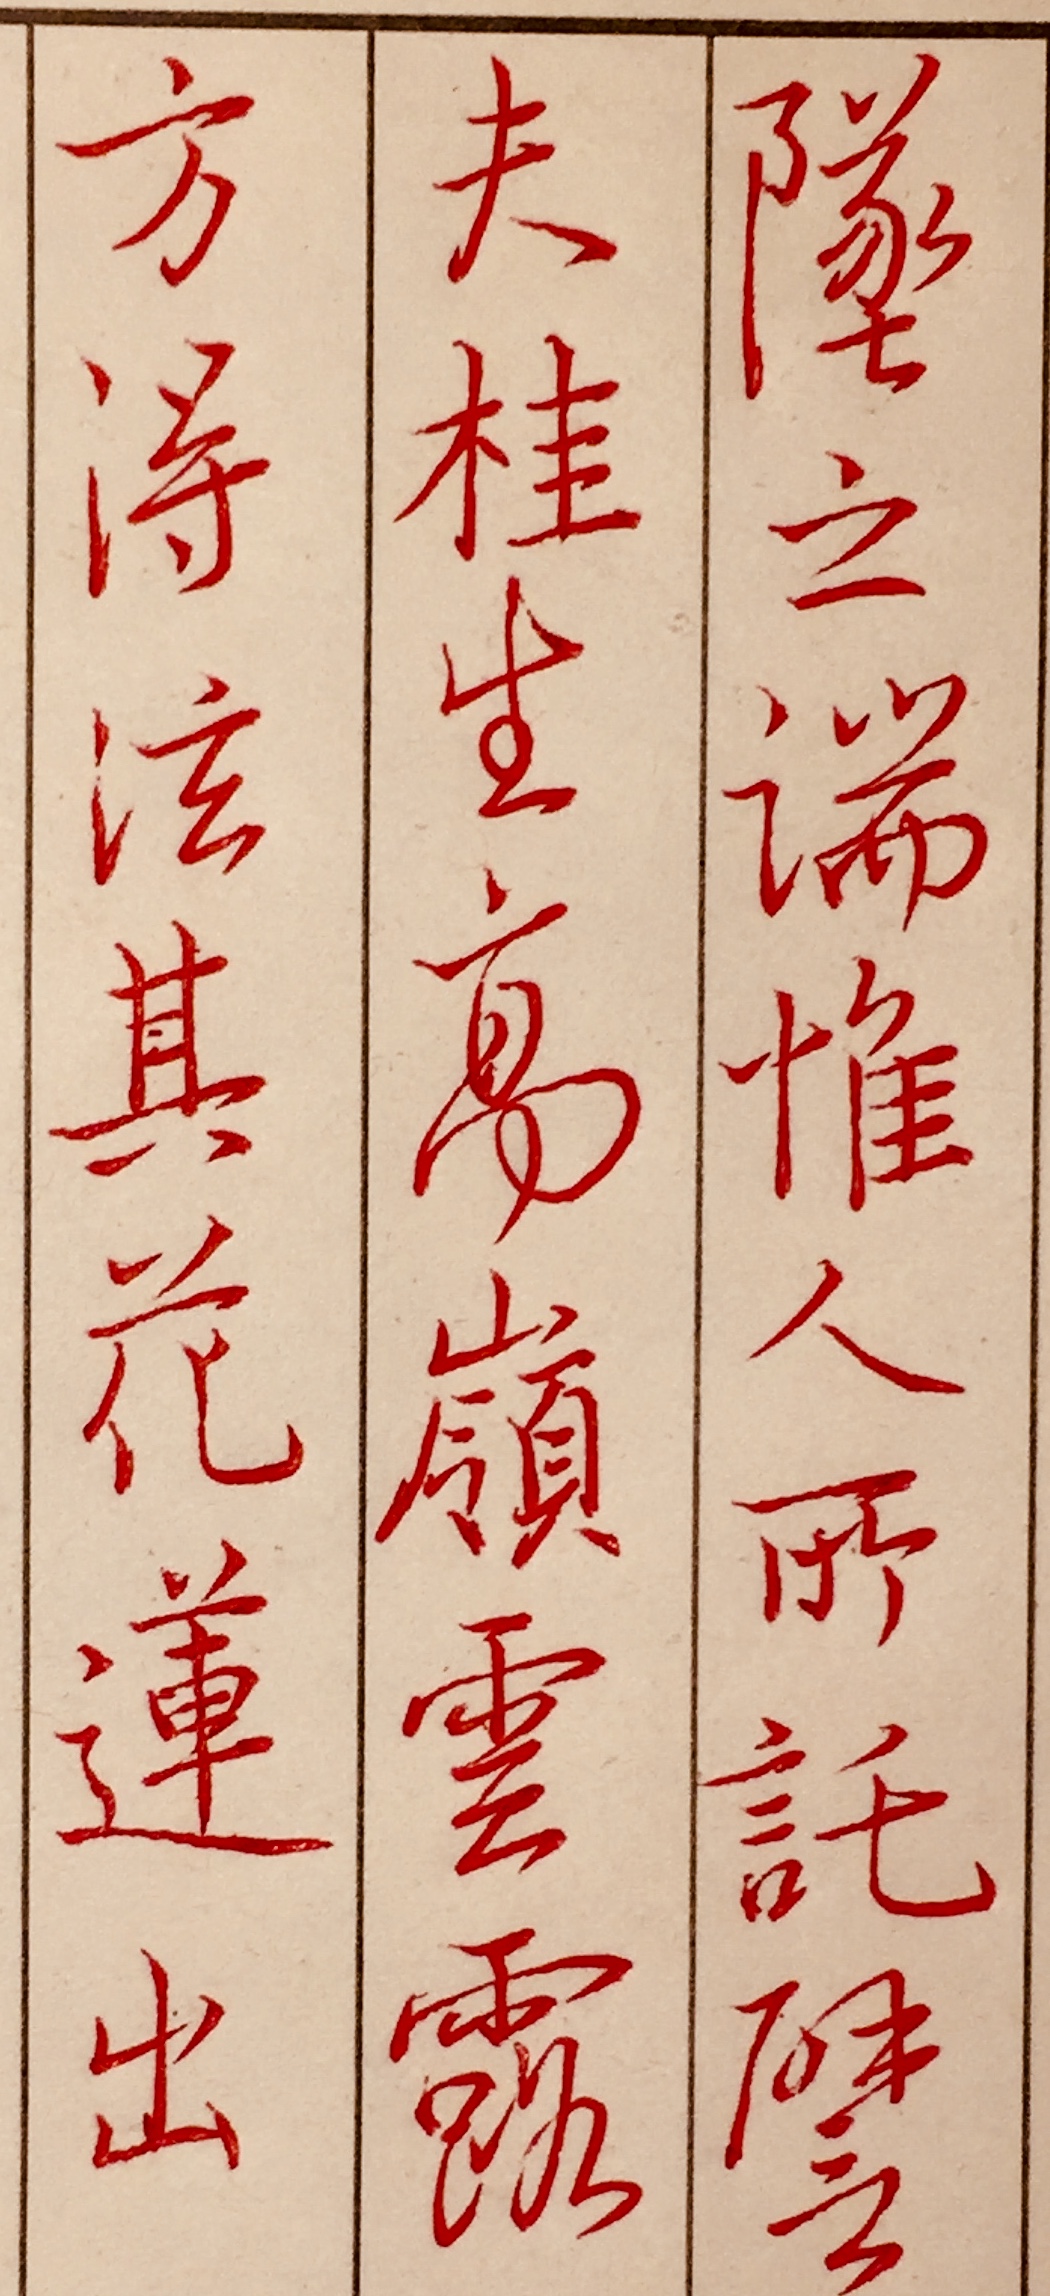 墜之端惟人所託譬
夫桂生高嶺雲露
方得泫其花蓮出